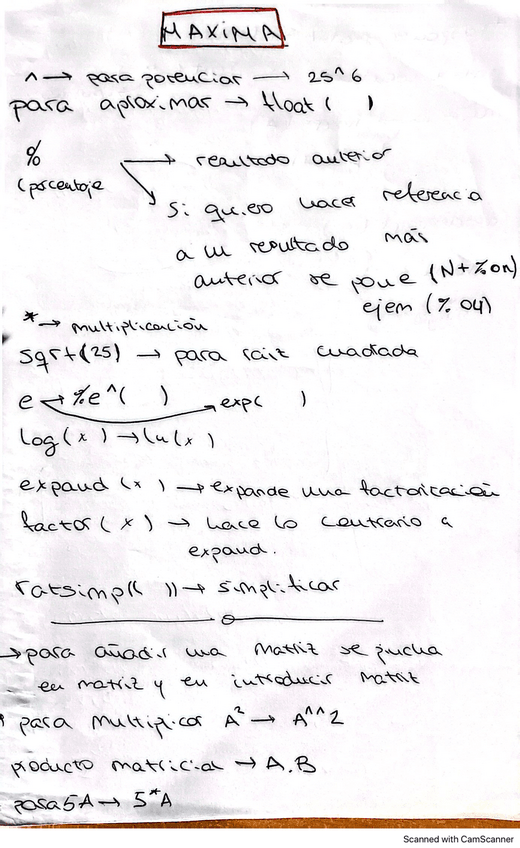 MAXIMA
^ → para potenciar → 25^6
para aproximar → float( )
% → resultado anterior
(porcentaje
Si quiero hacer referencia
a un resultado más
anterior se pone (N+%on)
ejem (% 04)
* → multiplicación
sqrt(25) → para raiz cuadrada
e → %e^( ) → exp( )
log(x) → ln(x)
expand (x) → expande una factorización
factor (x) → hace lo contrario a
expand.
ratsimp(( )) → simplificar
→ para añadir una matriz se pincha
en matriz y en introducir matriz
para multiplicar A² → A^^2
producto matricial → A.B
para 5A → 5*A
Scanned with CamScanner